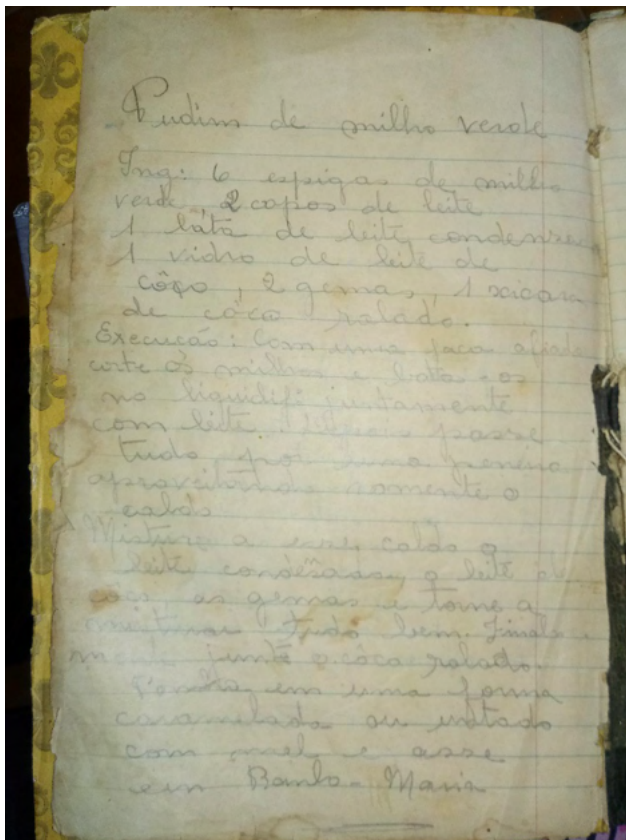 Pudim de milho verde
Ing: 6 espigas de milho
verde, 2 copos de leite
1 lata de leite condensa
1 vidro de leite de
côço, 2 gemas, 1 xicara
de côco ralado.
Execução: Com uma faca afiada
corte os milhos e bata-os
no liquidifi juntamente
com leite depois passe
tudo por uma peneira
aproveitando somente o
caldo
Misture a esse caldo o
leite condensado, o leite de
côco as gemas e torne a
misturar tudo bem. Final
mente junte o côco ralado.
Ponha em uma forma
caramelada ou untada
com mel e asse
em Banho-Maria